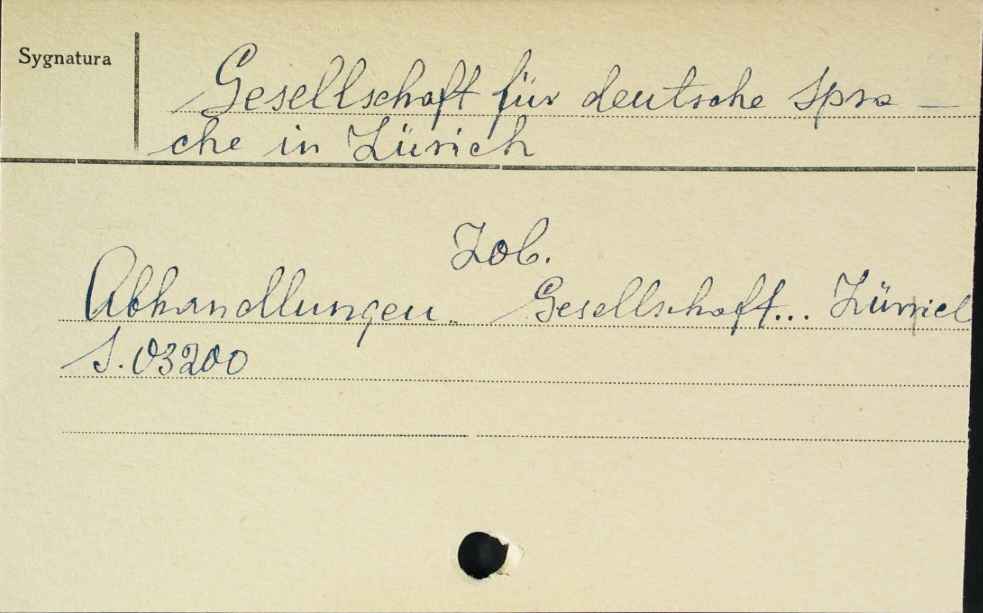 Sygnatura
Gesellschaft für deutsche Spra-
che in Zürich
Zob.
Abhandlungen. Gesellschaft... Zürich
S. 03200